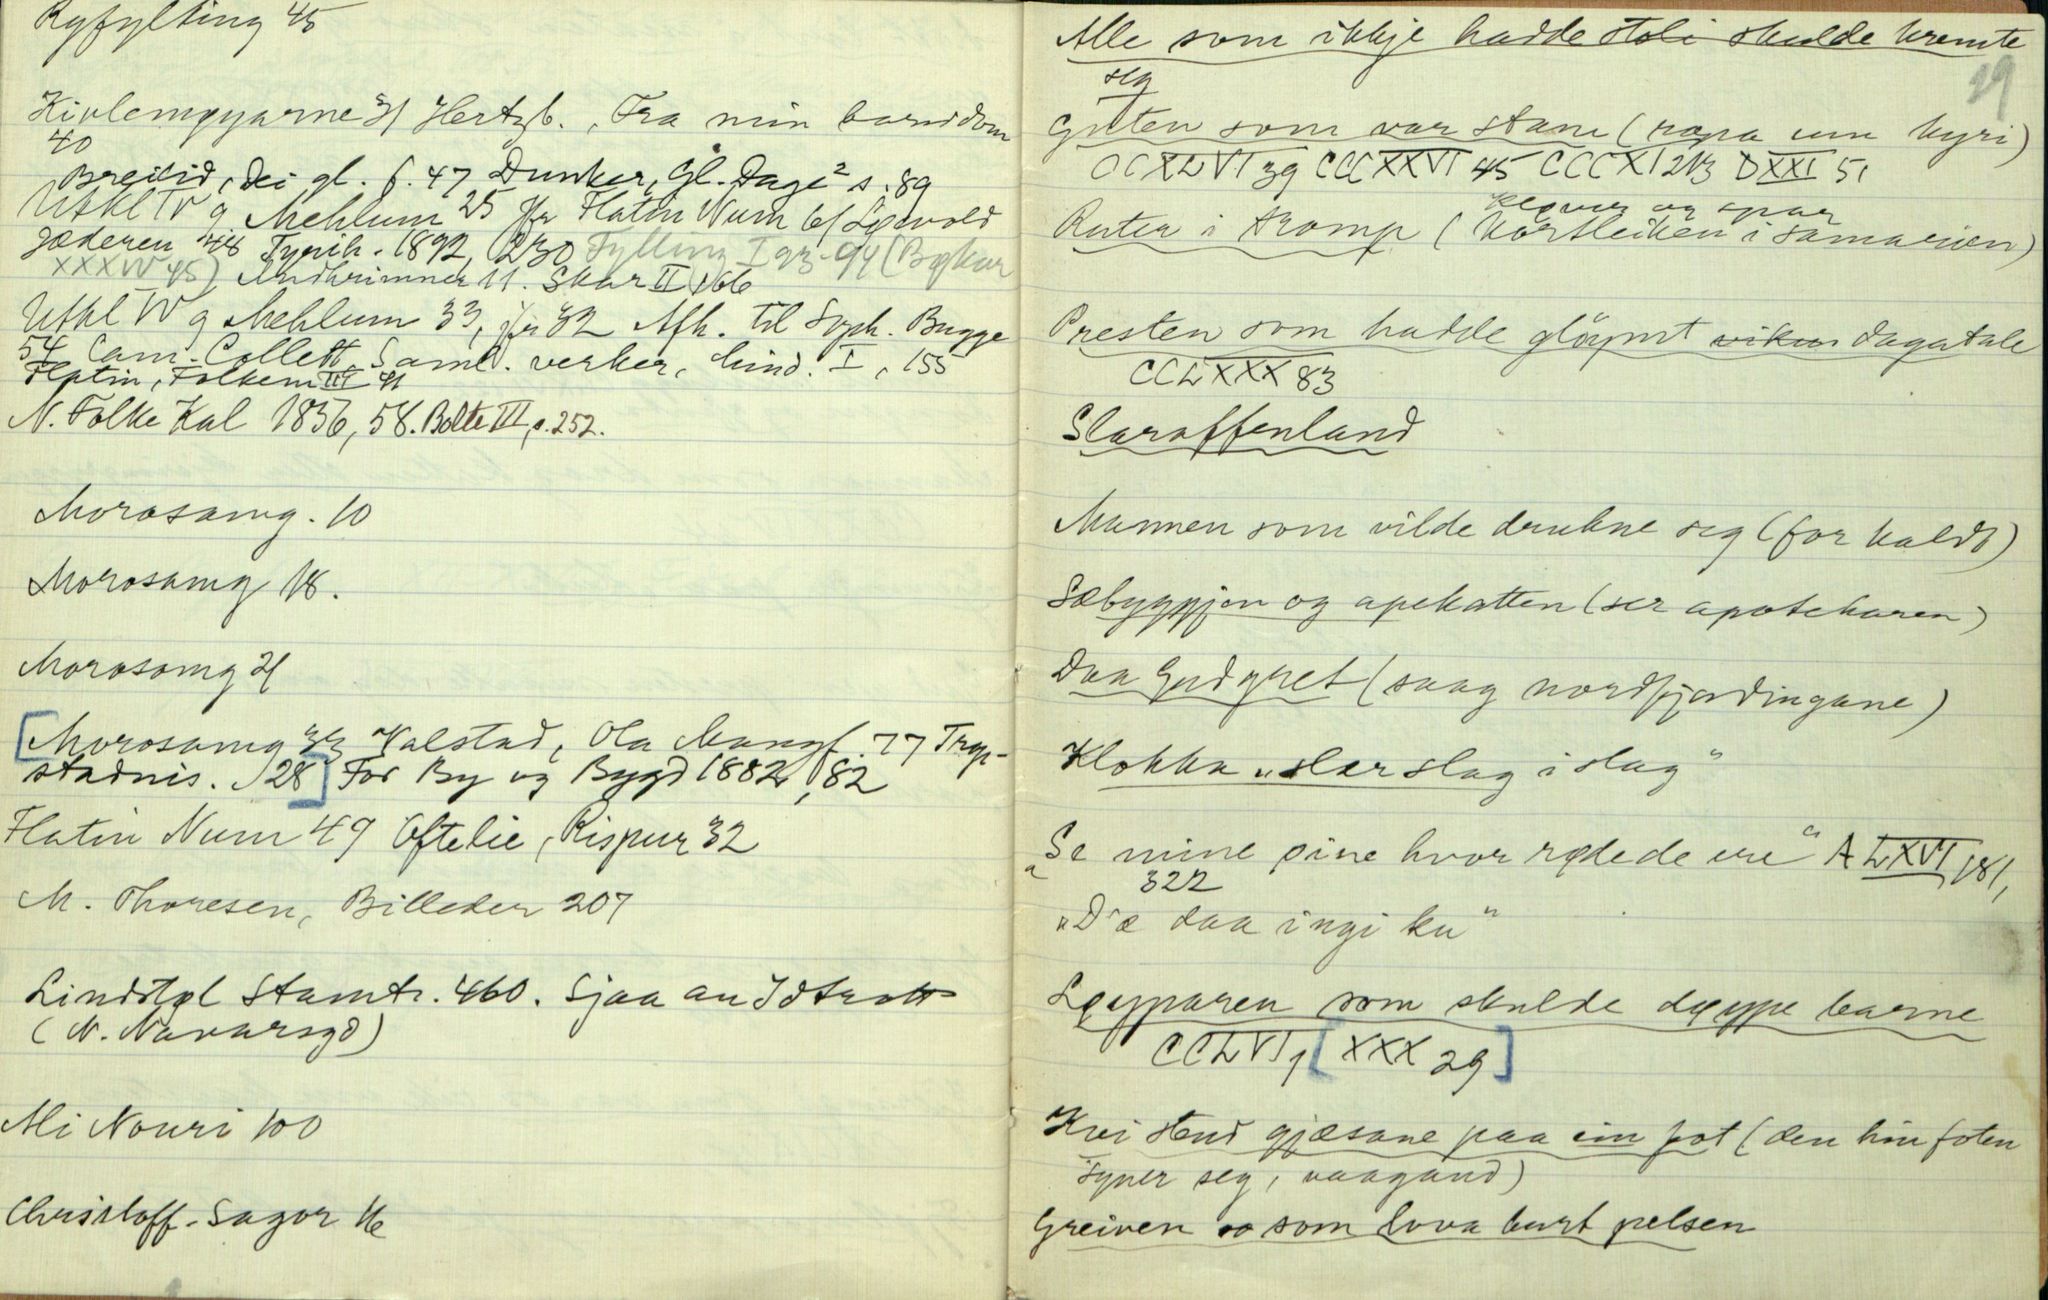 Ryfylking 45
Kivlemøyarne 31 Hertzb., Fra min barndom
40
Breilid, Dei gl. f. 47 Dunker, Gl. Dage² s. 89
Utkl IV 9 Mehlum 25 jfr Flatin Num 61 Løvold
Jæderen 44 Tyrih. 1892, 230 Fylling I 93-94 (Bøkur
XXXIV 45) Andhrimner 11. Skar II 166
Utkl IV 9 Mehlum 33, jfr 32 Afh. til Soph. Bugge
54 Cam. Collett, Saml. verker, Mind. I, 155
Flatin, Folkem III 41
N. Folke Kal 1856, 58. Bolte III, s. 252.
Morosamg. 10
Morosamg 18.
Morosamg 21
[Morosamg 33 Valstad, Ola Mangf. 77 Trøg-
stadnis. 128] For By og Bygd 1882, 82
Flatin Num 49 Oftelie, Rispur 32
M. Thoresen, Billeder 207
Lindstøl Stamtr. 460. Sjaa au Idtrott
(N. Navarsgd)
Ali Nouri 100
Christoff. Sagor 16
Alle som ikkje hadde stole skulde kremte
seg
29
Guten som var stam (ropa um hyri)
CCXLVI 39 CCCXXVI 45 CCCXI 213 DXXI 51
kløver og spar
Ruter i tromp (Kortleiken i Samarien)
Presten som hadde gløymt dagatale
CCLXXX 83
Slaraffenland
Mannen som vilde drukne seg (for kaldt)
Sæbyggjen og apekatten (ser apotekaren)
Daa Gudgret (saag nordfjordingane)
Klokka "slær slag i slag"
"Se mine øine hvor røde de ere" A LXVI 181,
322
"D'æ daa ingi ku"
Løyparen som skulde døype barne
CCLVI 1 [XXX 29]
Kvi stend gjæsane paa ein fot (den hin foten
syner seg, vaagand)
Greiven som lova burt pelsen